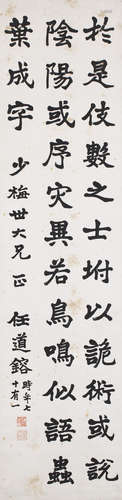 於是伎數之士坿以詭術或說
陰陽或序灾異若鳥鳴似語蟲
葉成字
少梅世大兄正
任道鎔
時年七
十有一